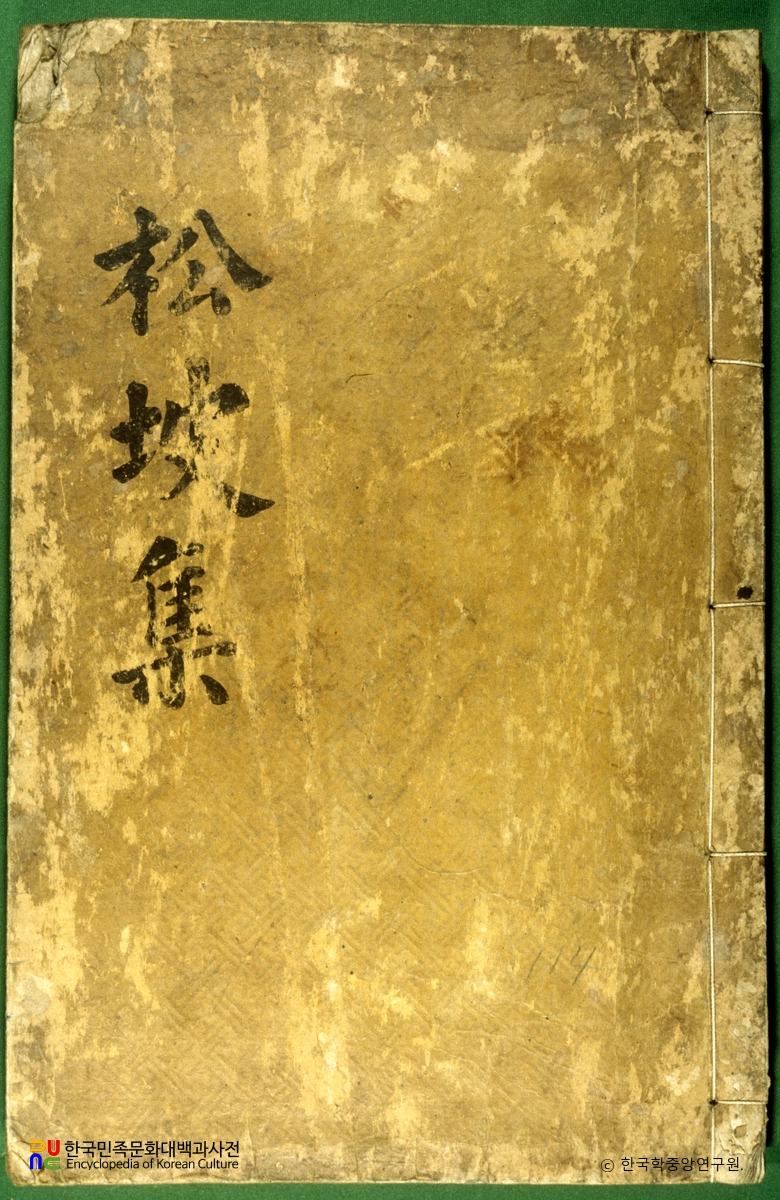 松坡集
114
한국민족문화대백과사전
Encyclopedia of Korean Culture
© 한국학중앙연구원.